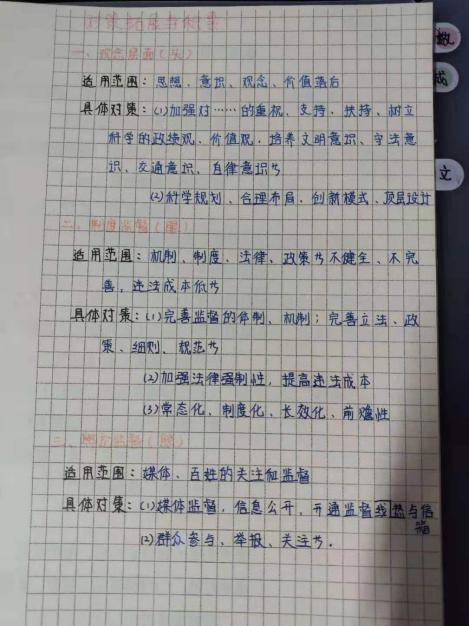 对策拓展与积累
一、观念层面（头）
适用范围：思想、意识、观念、价值落后
具体对策：(1)加强对……的重视、支持、扶持、树立
科学的政绩观、价值观，培养文明意识、守法意
识、交通意识、自律意识等
(2)科学规划、合理布局、创新模式、顶层设计
二、制度监督（
适用范围：机制、制度、法律、政策等不健全、不完
善，违法成本低等
具体对策：(1)完善监督的体制、机制；完善立法、政
策、细则、规范等
(2)加强法律强制性，提高违法成本
(3)常态化、制度化、长效化、前瞻性
三、监督（眼）
适用范围：媒体、百姓的关注和监督
具体对策：(1)媒体监督，信息公开，开通监督热线与信
箱
(2)群众参与、举报、关注等.
数
成
文